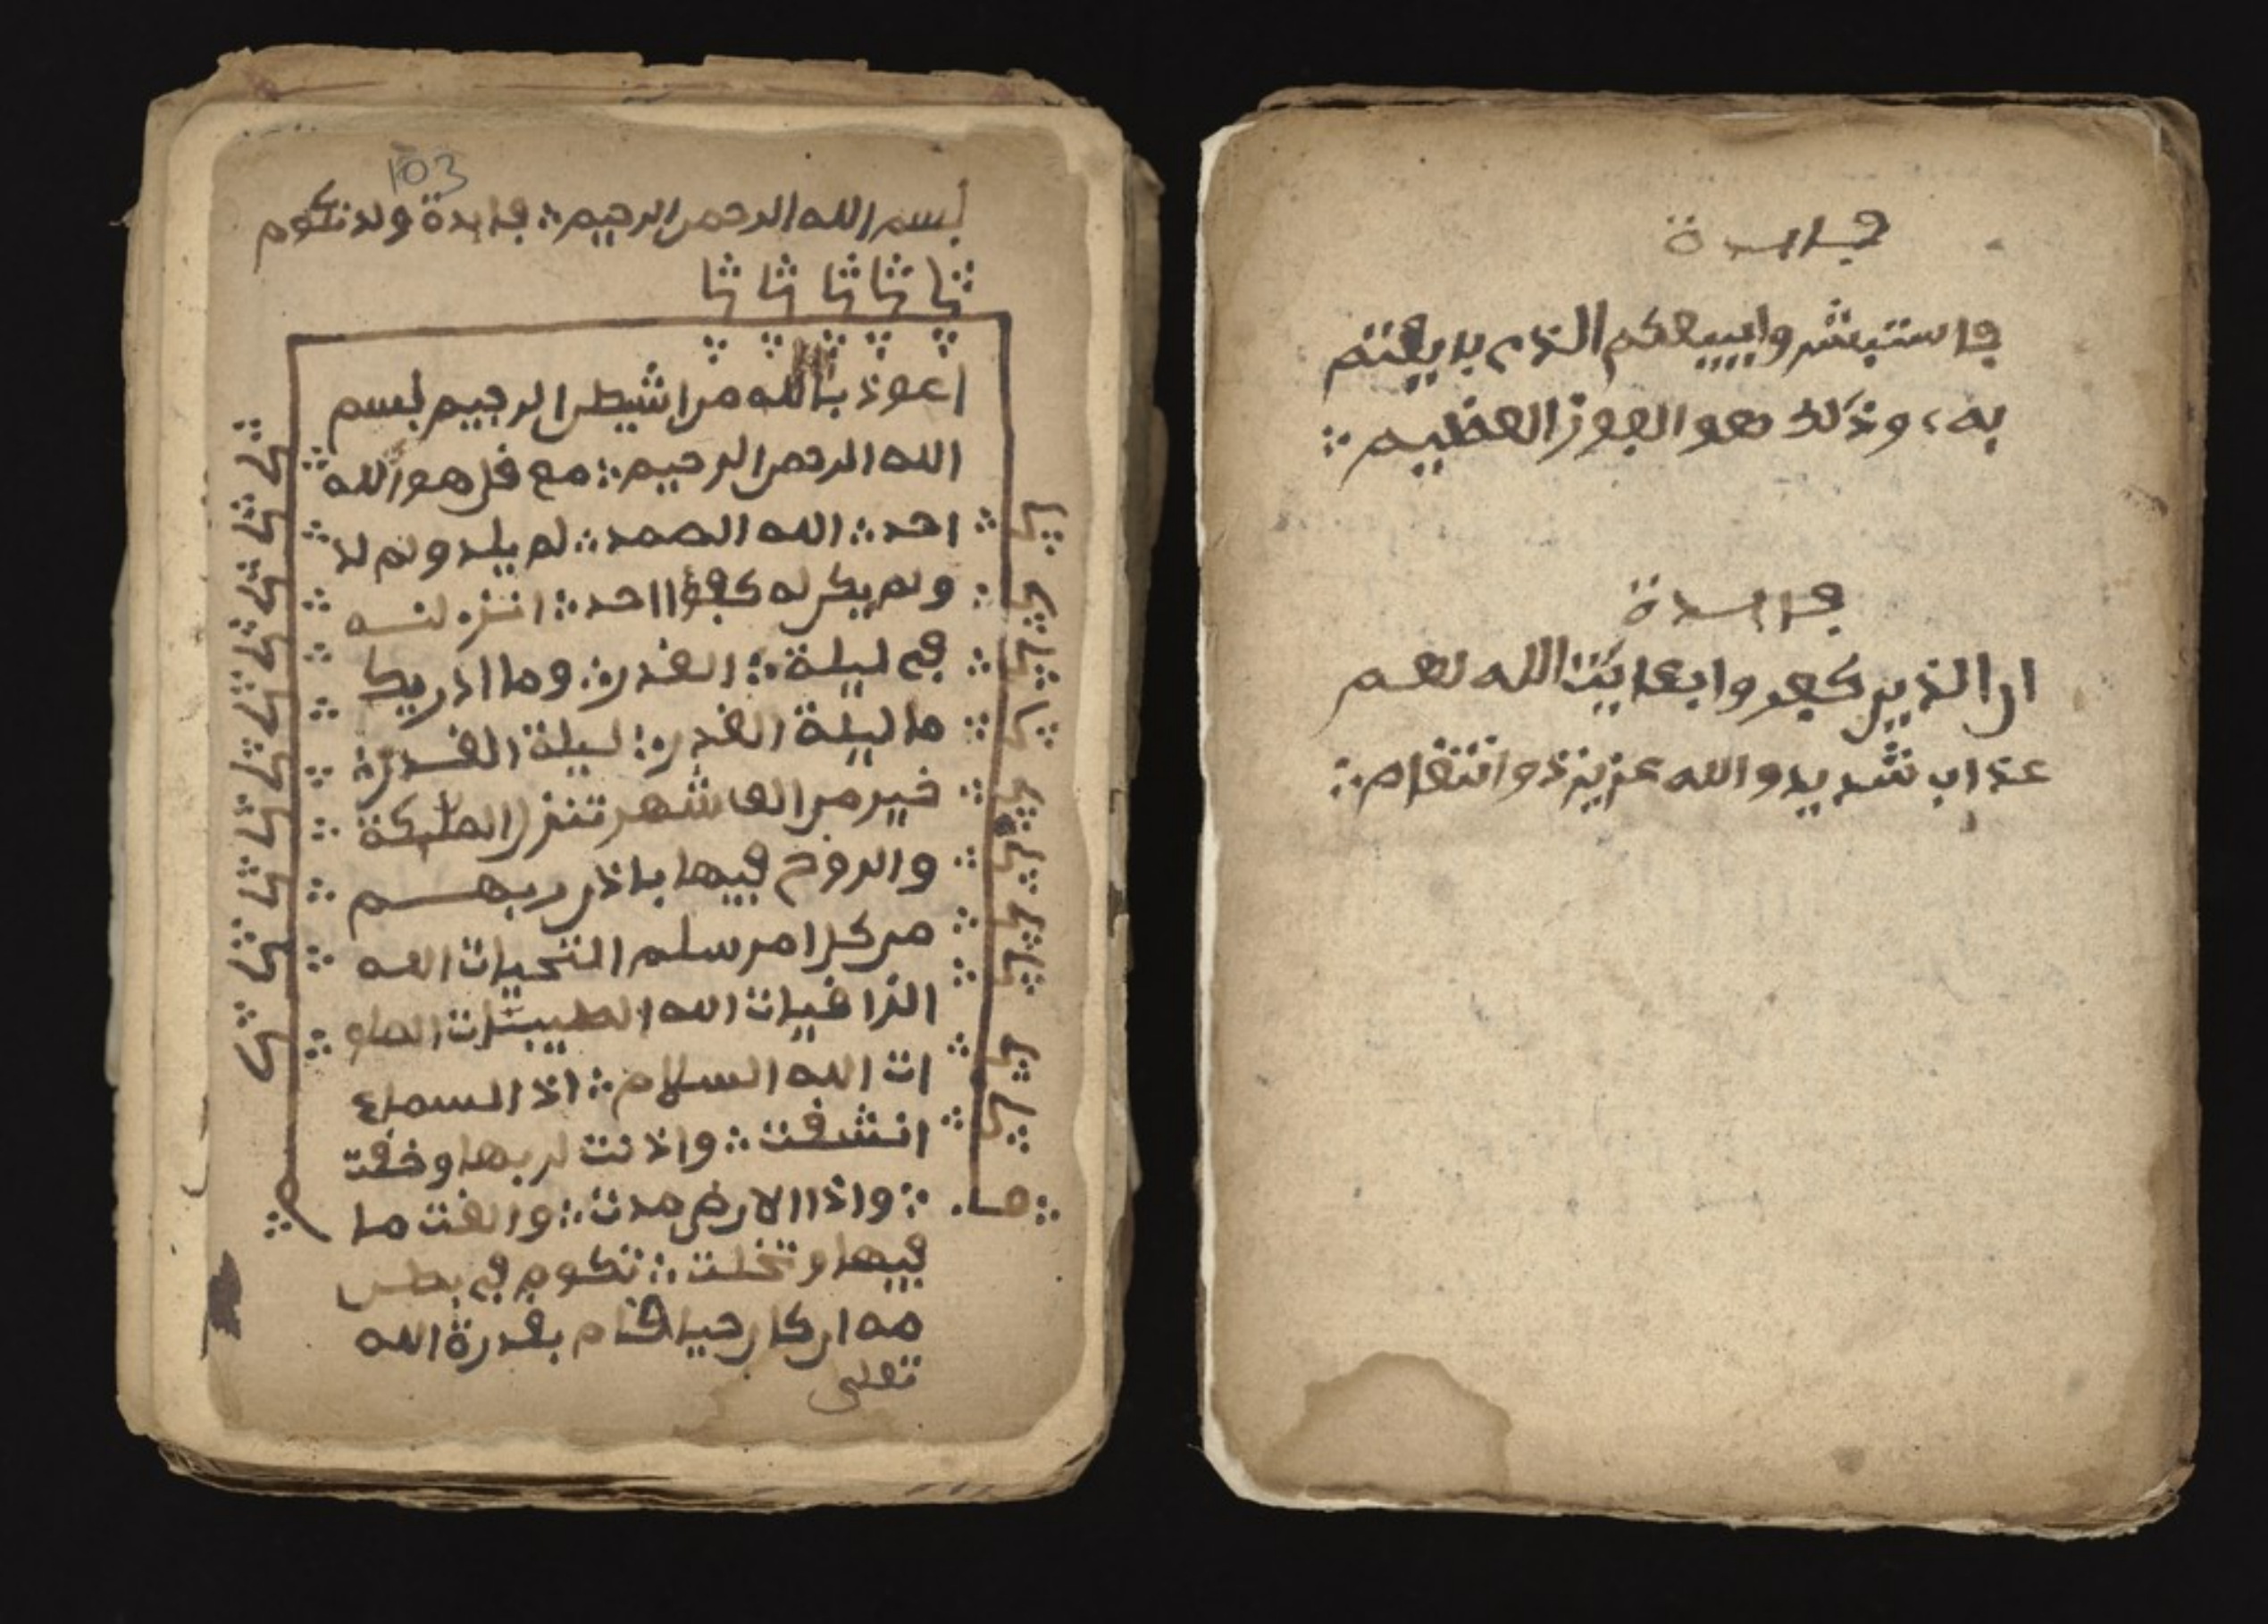 فايدة
فاستبشروا ببيعكم الذي بايعتم
به، وذلك هو الفوز العظيم
فايدة
ان الذين كفروا بعايت الله لهم
عذاب شديد والله عزيز ذو انتقام
103
بسم الله الرحمن الرحيم فايدة ولد تكوم
اعوذ بالله من اشيطن الرجيم بسم
الله الرحمن الرحيم مع قل هو الله
احد الله الصمد لم يلد ولم لد
ولم يكن له كفؤا احد انزلنه
في ليلة القدر وما ادريك
ما ليلة القدر ليلة القدر
خير من الف شهر تنزل الملىكة
والروح فيها باذن ربهم
من كل امر سلم التحيات الله
الزاقيات الله الطيبات الصلو
ات الله السلام اذ السماء
انشقت واذنت لربها وخقت
واذا الارض مدت والقت ما
فيها وتخلت تكوم في بطن
مه ان كان حيا قام بقدرة الله
تعلى